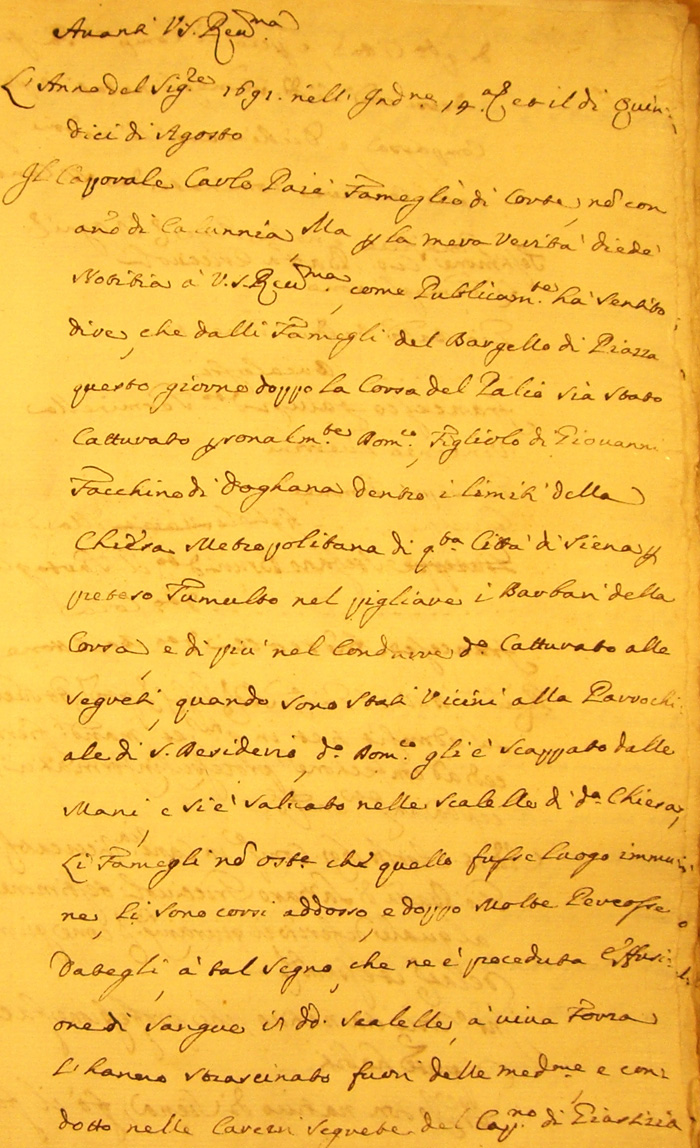 Avanti V.S. Reu.ma
L'Anno del Sig.re 1691. nell' Ind.ne 14.a et il di Quin:
dici di Agosto
Il Caporale Carlo Paie Fameglio di Corte, nõ con
año di Calunnia, Ma p la mera Verità diede
Notitia à V.S. Reu.ma, come Publicam.te hà sentito
dire, che dalli Famegli del Bargello di Piazza
questo giorno doppo la Corsa del Palio sia stato
Catturato psonalm.te Dom.co, Figliolo di Giovanni
Facchino di Doghana dentro i limiti della
Chiesa Metropolitana di q.ta Città di Siena p
preteso Tumulto nel pigliare i Barbari della
Corsa, e di più nel Condurre d.o Catturato alle
segreti, quando sono stati Vicini alla Parrochi:
ale di S. Desiderio, d.o Dom.co gli è scappato dalle
Mani, e si è salvato nelle scalelle di d.a Chiesa,
Li Famegli nõ ost.e chè quello fusse luogo immu:
ne, li sono corsi addosso, e doppo Molte Percosse
Dategli à tal segno, che ne è proceduta Effusi:
one di sangue in dd. scalelle, à viva Forza
l'hanno strascinato fuori delle med.me e con:
dotto nelle Carceri segrete del Cap.no di Giustizia